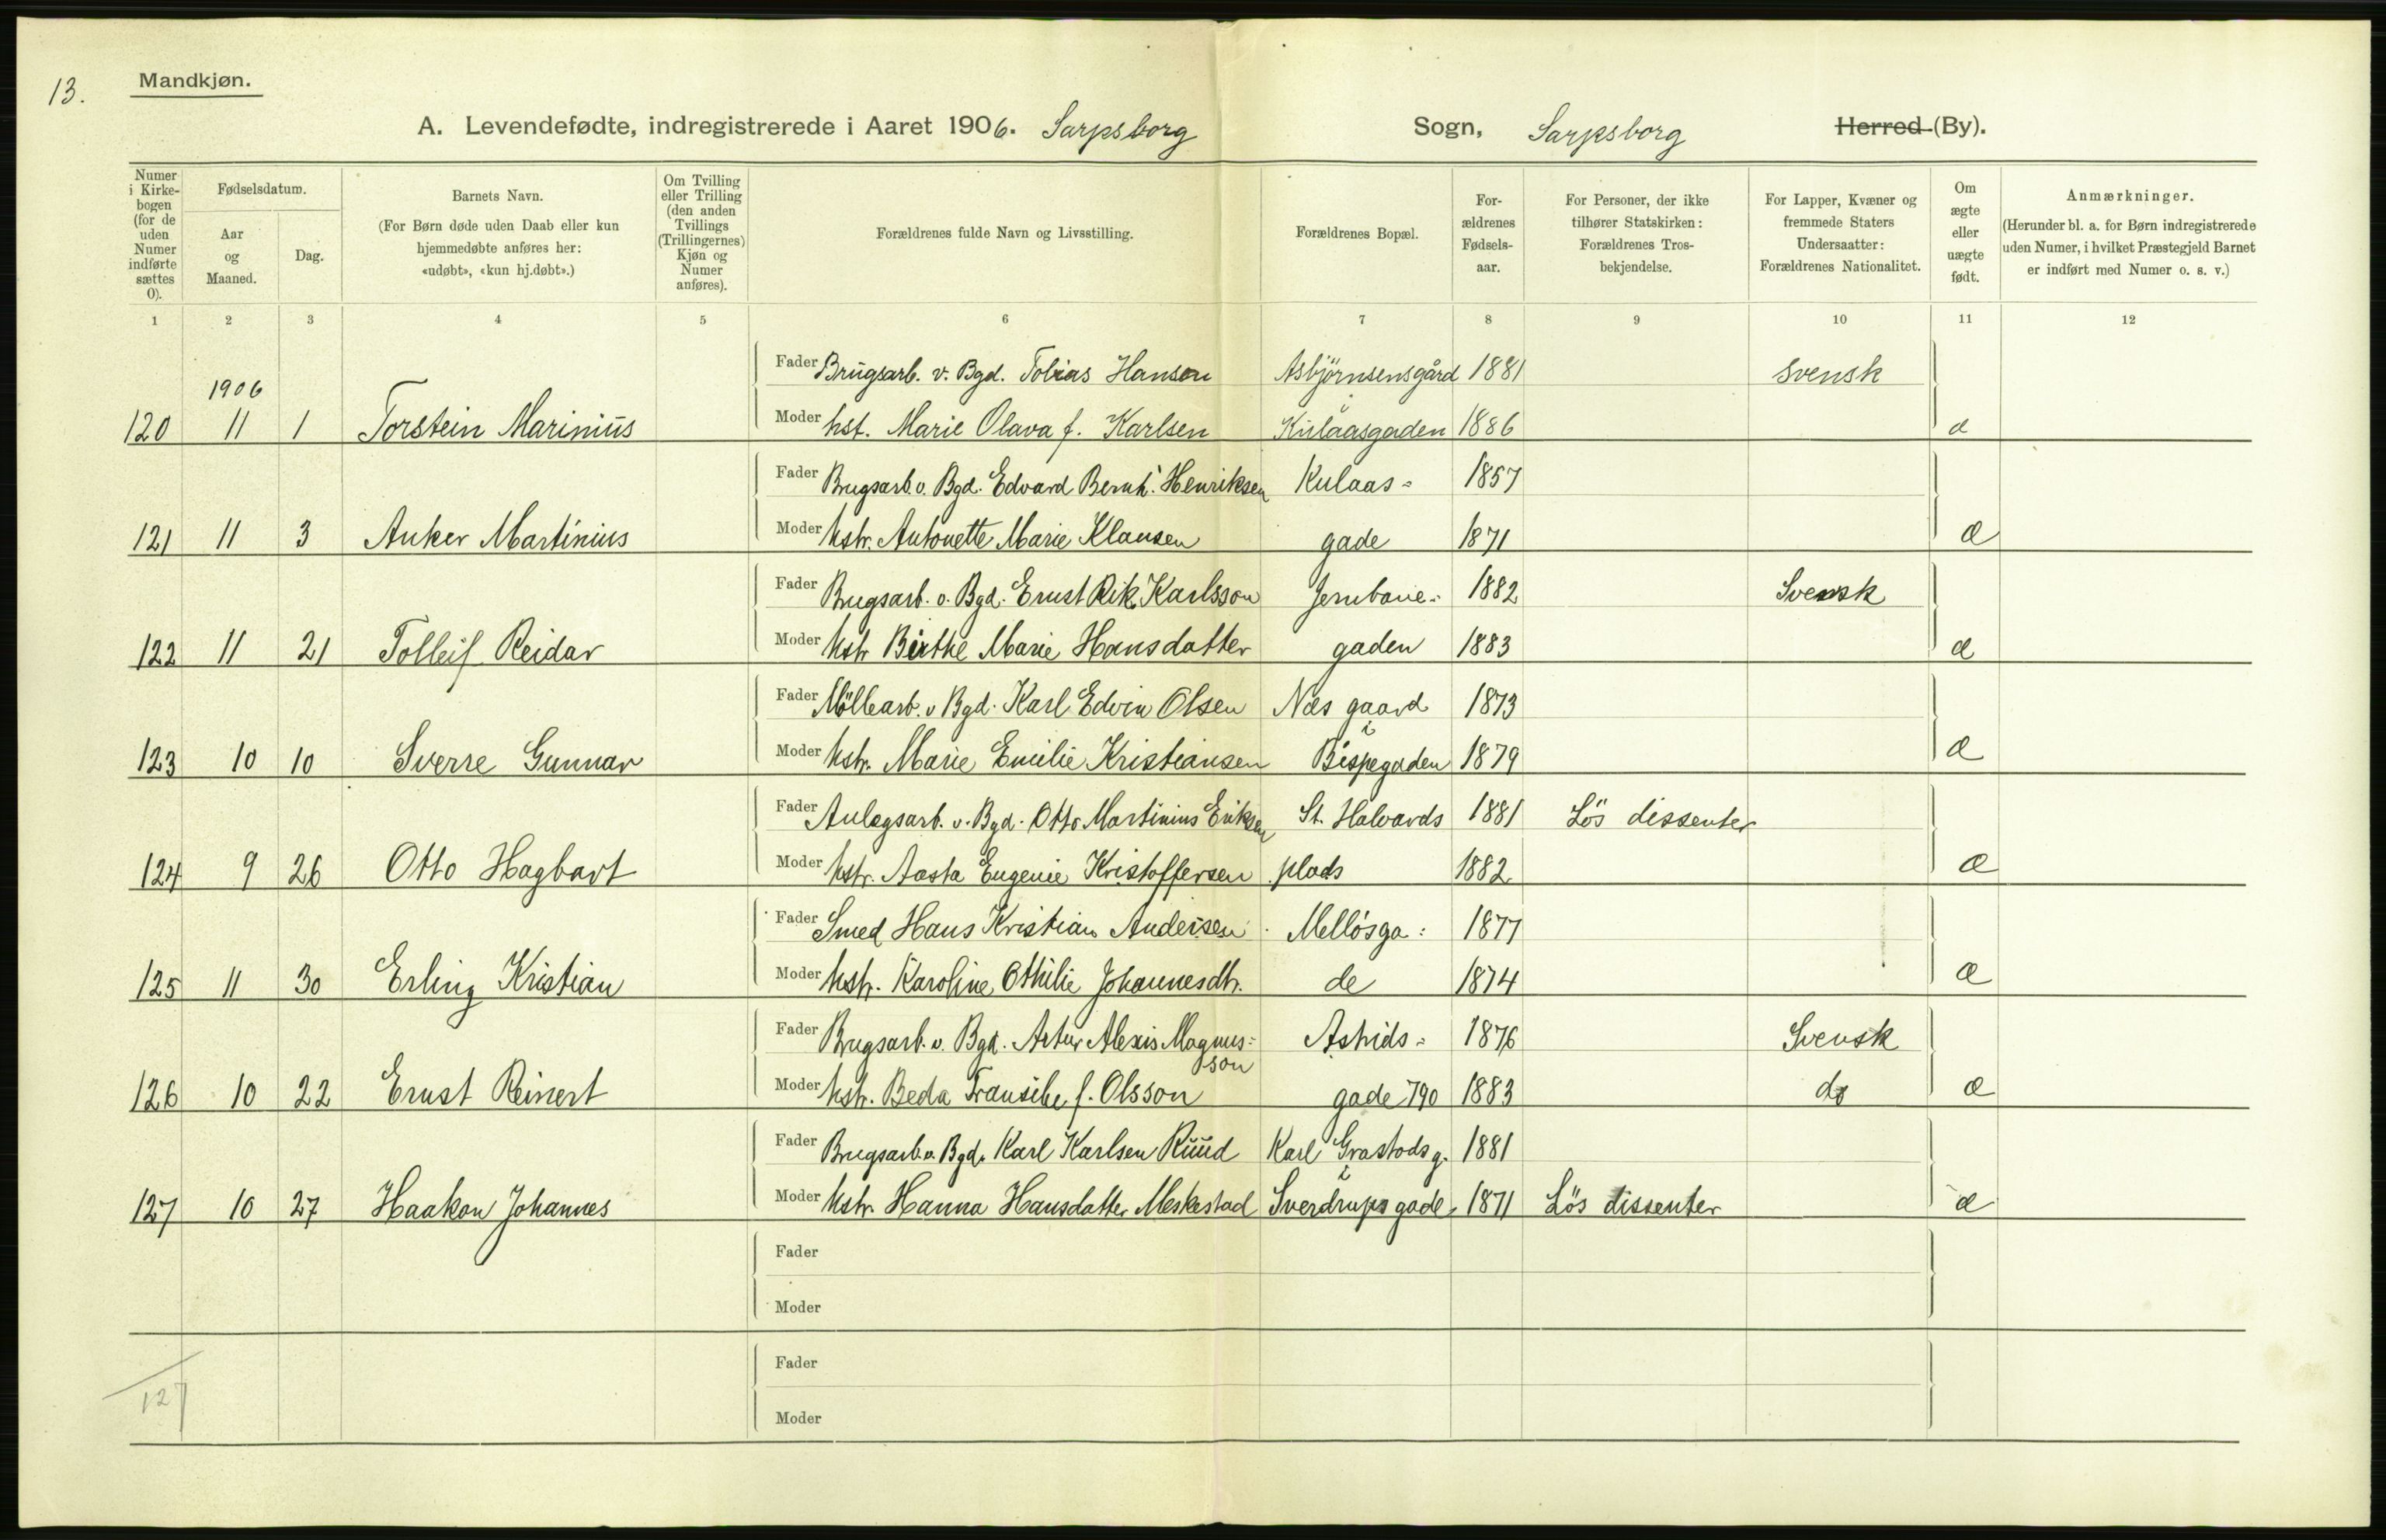 13.
Mandkjøn.
A. Levendefødte, indregistrerede i Aaret 1906. Sarpsborg Sogn, Sarpsborg Herred (By).
Numer i Kirkebogen (for de uden Numer indførte sættes 0).
Fødselsdatum.
Aar og Maaned.
Dag.
Barnets Navn.
(For Børn døde uden Daab eller kun hjemmedøbte anføres her: «udøbt», «kun hj.døbt».)
Om Tvilling eller Trilling (den anden Tvillings (Trillingernes) Kjøn og Numer anføres).
Forældrenes fulde Navn og Livsstilling.
Forældrenes Bopæl.
For-ældrenes Fødsels-aar.
For Personer, der ikke tilhører Statskirken: Forældrenes Tros-bekjendelse.
For Lapper, Kvæner og fremmede Staters Undersaatter: Forældrenes Nationalitet.
Om ægte eller uægte født.
Anmærkninger.
(Herunder bl. a. for Børn indregistrerede uden Numer, i hvilket Præstegjeld Barnet er indført med Numer o. s. v.)
1 2 3 4 5 6 7 8 9 10 11 12
1906
Fader Brugsarb. v. Bgd. Tobias Hansen Asbjörnsensgård 1881 Svensk
120 11 1 Torstein Marinius Moder hst. Marie Olava f. Karlsen Kulåasgaden 1886 æ
Fader Brugsarb. v. Bgd. Edvard Bernh. Henriksen Kulaas- 1857
121 11 3 Anker Martinius Moder hstr. Antonette Marie Klausen gade 1871 æ
Fader Brugsarb. v. Bgd. Ernst Rik. Karlsson Jernbane- 1882 Svensk
122 11 21 Tolleif Reidar Moder hstr Birthe Marie Hansdatter gaden 1883 æ
Fader Möllearb. v Bgd. Karl Edvin Olsen Næs gaard 1873
123 10 10 Sverre Gunnar Moder hstr. Marie Emilie Kristiansen i Bispegaden 1879 æ
Fader Anlægsarb. v. Bgd. Otto Martinius Eriksen St. Halvards 1881 Lös dissenter
124 9 26 Otto Hagbart Moder hstr. Aasta Eugenie Kristoffersen plads 1882 æ
Fader Smed Hans Kristian Andersen Mellösga: 1877
125 11 30 Erling Kristian Moder hstr. Karoline Othilie Johannesdtr. de 1874 æ
Fader Brugsarb. v. Bgd. Artur Alexis Magnus- Astrids- 1876 Svensk
son
126 10 22 Ernst Reinert Moder hstr. Beda f. Olsson gade 790 1883 do æ
Fader Brugsarb. v. Bgd. Karl Karlsen Ruud Karl g. 1881
127 10 27 Haakon Johannes Moder hstr. Hanna Hansdatter Meskestad i Sverdrups gade 1871 Lös dissenter æ
Fader
Moder
Fader
127
Moder